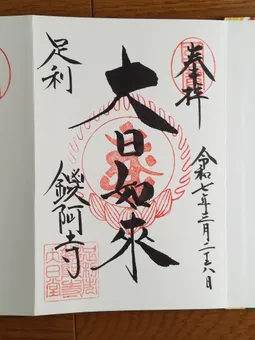 奉拝
令和七年三月二十八日
大日如來
足利
鑁阿寺